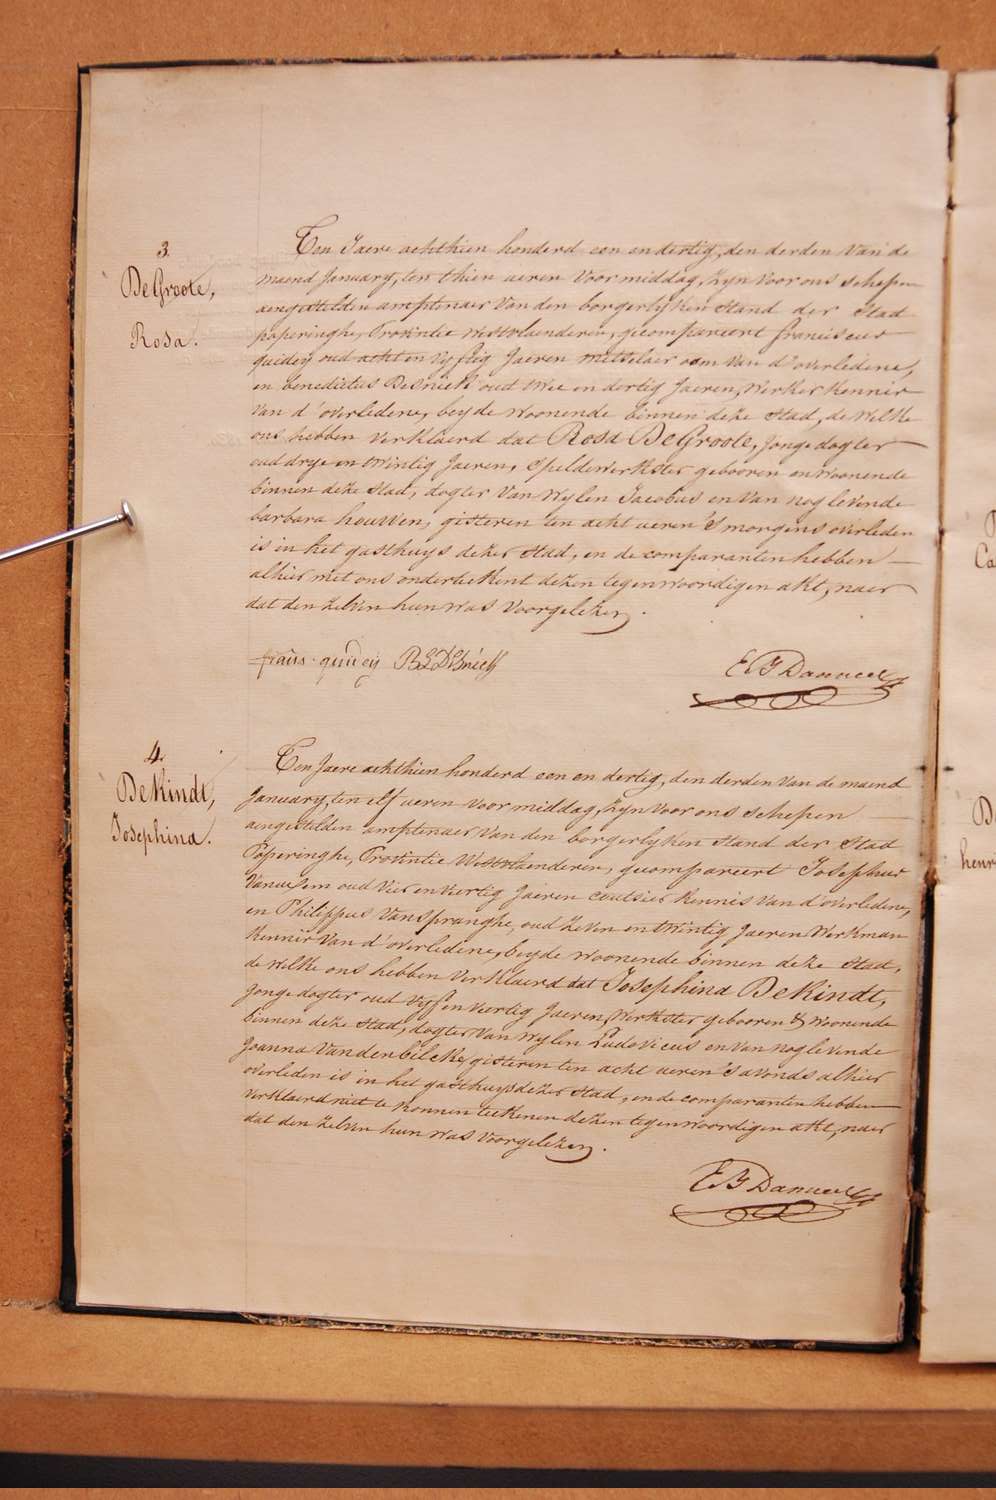 3.
DeGroote,
Rosa.
Ten Jaere achthien honderd een en dertig, den derden van de
maend January, ten thien ueren voor middag, zyn voor ons schepen
aengestelden amptenaer van den borgerlyken Stand der Stad
poperinghe, Provintie westvlaenderen, gecompareert franciscus
quidey oud acht en vyftig Jaeren mittelaer oom van d'overledene,
en benedictus Desnieck oud twee en dertig Jaeren, werker kennis
van d'overledene, beyde woonende binnen deze stad, de welke
ons hebben verklaerd dat Rosa DeGroote, Jonge dogter
oud drye en twintig Jaeren, speldewerkster gebooren en woonende
binnen deze stad, dogter van wylen Jacobus en van nog levende
barbara houwen, gisteren ten acht ueren 's morgens overleden
is in het gasthuys dezer stad, en de comparanten hebben
alhier met ons onderteekent dezen tegenwoordigen akt, naer
dat den zelven hun was voorgelezen.
frans quidey
E J Danneel
4.
DeKindt,
Josephina.
Ten Jaere achthien honderd een en dertig, den derden van de maend
January, ten elf ueren voor middag, zyn voor ons schepen
aengestelden amptenaer van den borgerlyken stand der Stad
Poperinghe, Provintie Westvlaenderen, gecompareert Josephus
oud vier en veertig Jaeren ceutsier kennis van d'overledene,
en Philippus Vanspranghe, oud zeven en twintig Jaeren Werkman
kennis van d'overledene, beyde woonende binnen deze stad,
de welke ons hebben verklaerd dat Josephina DeKindt,
Jonge dogter oud vyf en veertig Jaeren, Werkster gebooren & woonende
binnen deze stad, dogter van wylen Ludovicus en van nog levende
Joanna Vandenbilcke, gisteren ten acht ueren 's avonds alhier
overleden is in het gasthuys dezer stad, en de comparanten hebben
verklaerd niet te konnen teekenen dezen tegenwoordigen akt, naer
dat den zelven hun was voorgelezen.
E J Danneel
henr